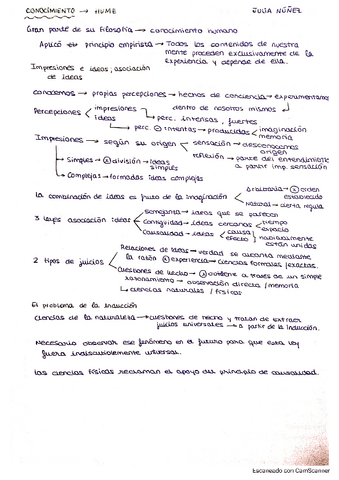 CONOCIMIENTO → HUME JULIA NÚÑEZ
Gran parte de su filosofía → conocimiento humano
Aplicó el principio empirista → Todos los contenidos de nuestra
mente proceden exclusivamente de la
experiencia y depende de ella.
Impresiones e ideas; asociación
de ideas
Conocemos → propias percepciones → hechos de conciencia → experimentamos
dentro de nosotros mismos
Percepciones impresiones → perc. intensas, fuertes
ideas → perc. intentas → producidas imaginación
memoria
Impresiones → según su origen sensación → desconocemos
origen
reflexión → parte del entendimiento
a partir imp. sensación
Simples → división → ideas
simples
Complejas → formadas ideas complejas
La combinación de ideas es fruto de la imaginación Arbitraria → orden
establecido
Natural → cierta regula
3 leyes asociación ideas Semejanza → ideas que se parecen
Contigüidad → ideas cercanas tiempo
espacio
Causalidad → ideas causa
efecto habitualmente
están unidas
2 tipos de juicios Relaciones de ideas → verdad se alcanza mediante
la razón experiencia → Ciencias formales /exactas.
Cuestiones de hecho → obtiene a traves de un simple
razonamiento → observación directa /memoria
ciencias naturales / físicas
El problema de la inducción
Ciencias de la naturaleza → cuestiones de hecho y tratan de extraer
juicios universales → a partir de la inducción.
Necesario observar ese fenómeno en el futuro para que esta ley
fuera indiscutiblemente universal.
Las ciencias físicas reclaman el apoyo del principio de causalidad.
Escaneado con CamScanner